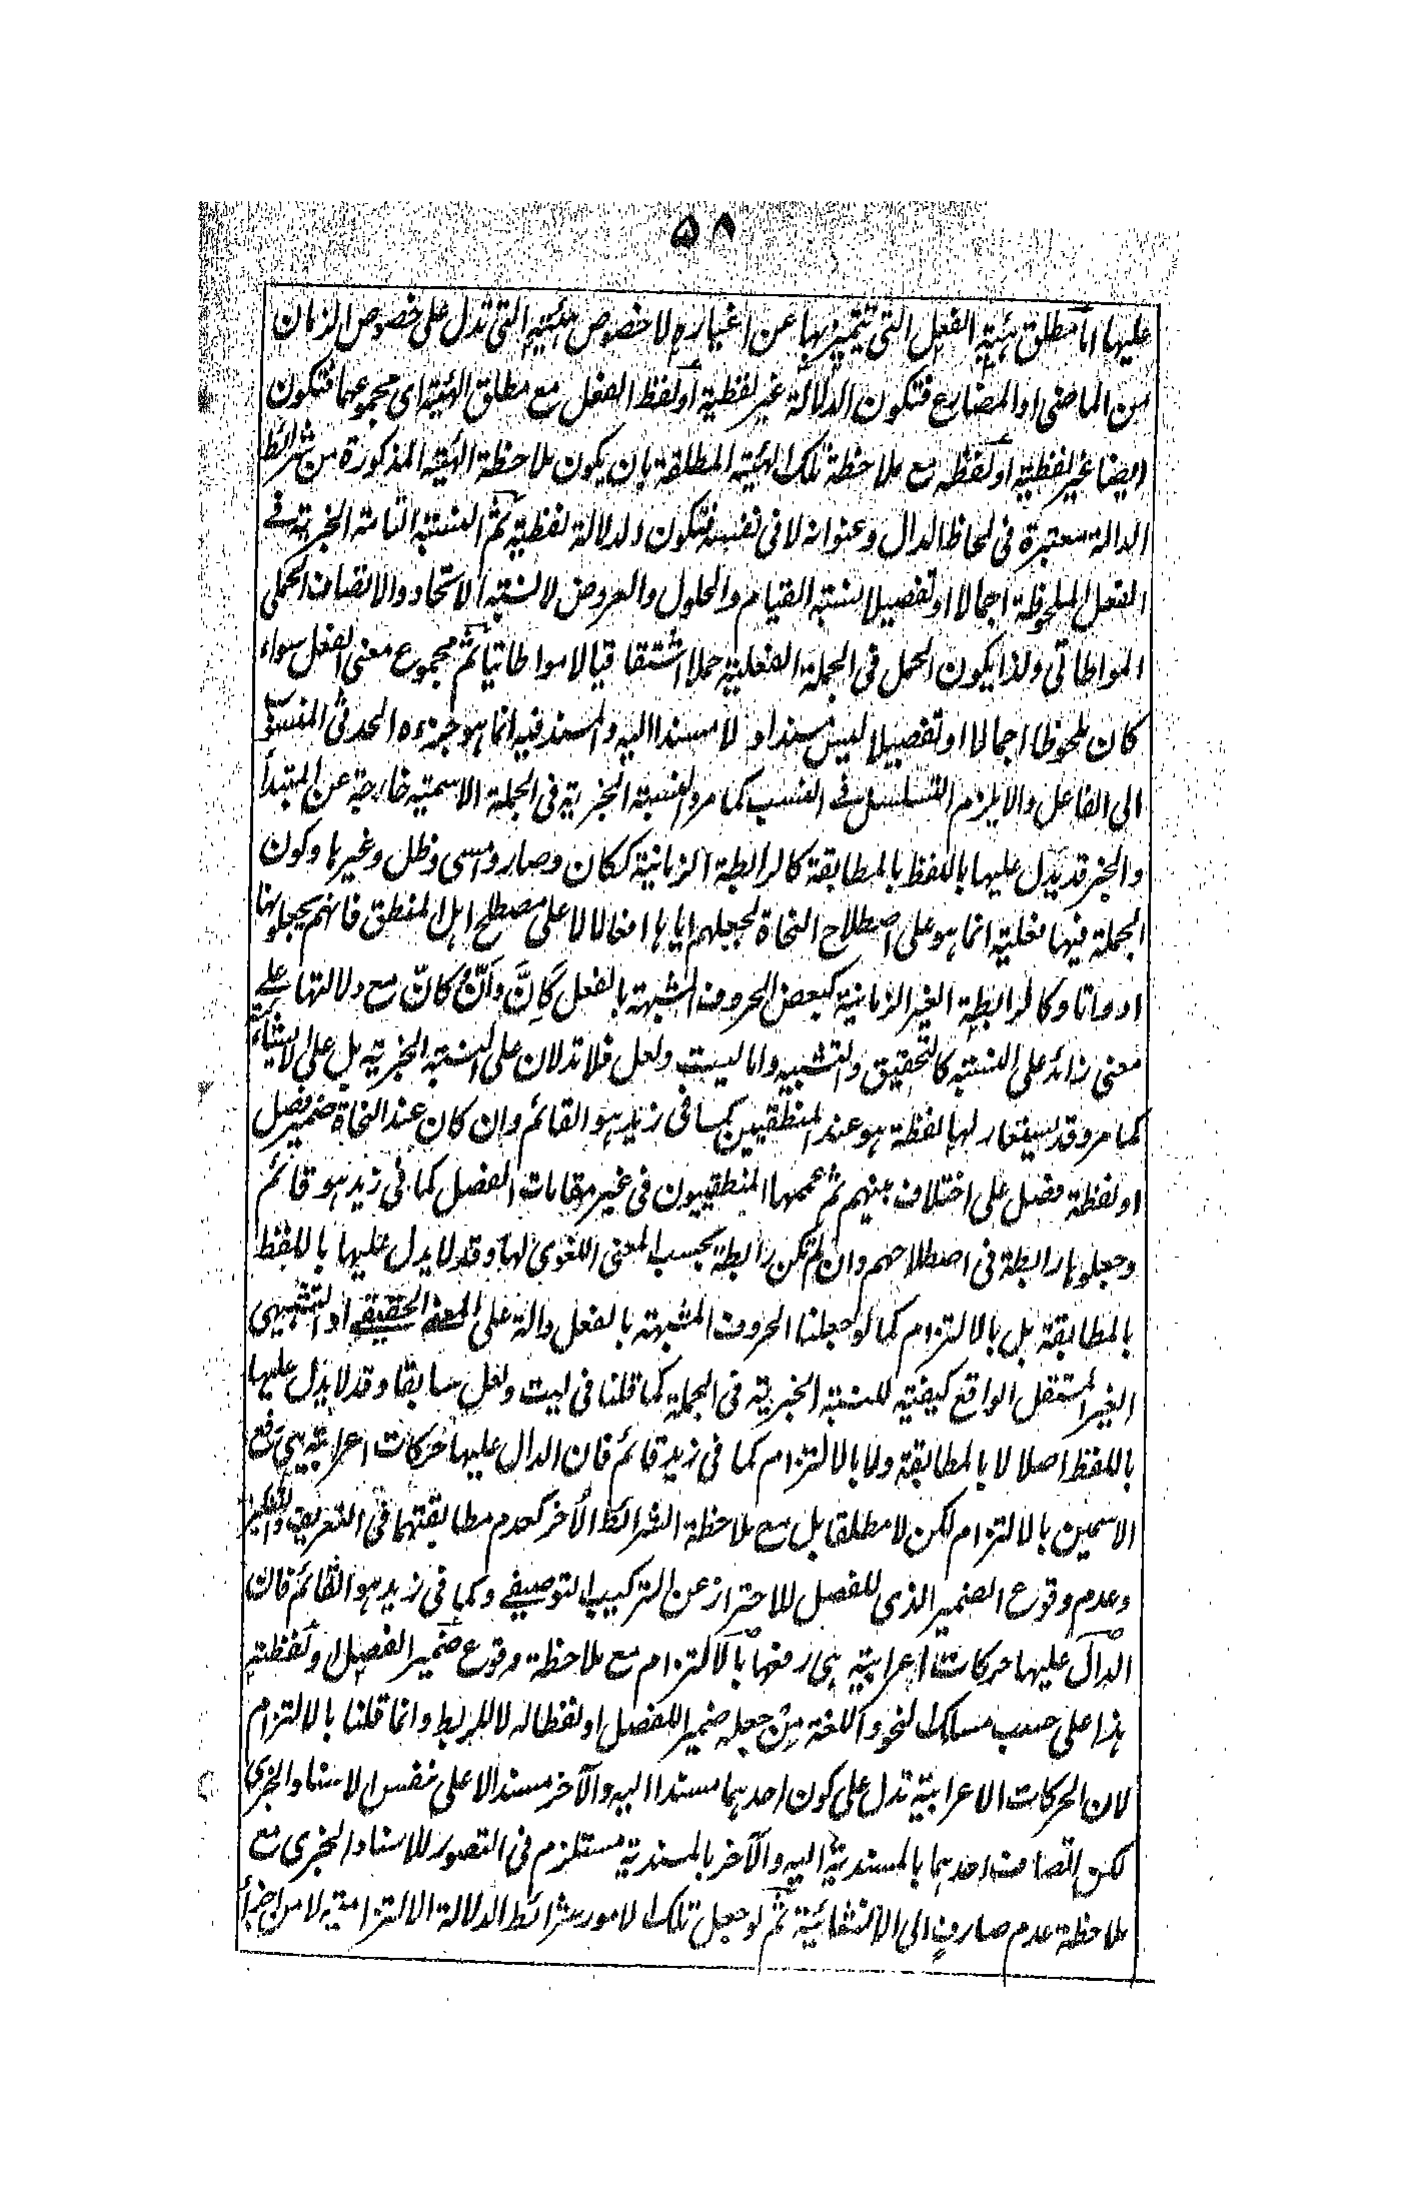 ۵۸
عليها اما مطلق هيئية الفعل التى تتميز بها عن اغياره لا خصوص هيئته التى تدل على خصوص الزمان
من الماضى او المضارع فتكون الدلالة غير لفظية أو لفظ الفعل مع مطلق الهيئة اى مجموعهما فتكون
ايضا غير لفظية او لفظه مع ملاحظة تلك الهيئية المطلقة بان يكون ملاحظة الهيئة المذكورة من شرائط
الدالة معتبرة فى لحاظ الدال وعنوانه لا فى نفسه فتكون الدلالة لفظية ثم النسبة التامة الخبرية فى
الفعل الملحوظة اجمالا او تفصيلا نسبة القيام والحلول والعروض لا نسبة الاتحاد والاتصاف الحملى
المواطاتى ولذا يكون الحمل فى الجملة الفعلية حملا اشتقاقيا لا مواطاتيا ثم مجموع معنى الفعل سواء
كان ملحوظا اجمالا او تفصيلا ليس مسندا و لا مسندا اليه والمسند فيه انما هو جزءه الحدثى المنسوب
الى الفاعل والا يلزم التسلسل فى النسب كما مر والنسبة الخبرية فى الجملة الاسمية خارجة عن المبتدأ
والخبر قد يدل عليها باللفظ بالمطابقة كالرابطة الزمانية ككان وصار وامسى وظل وغيرها وكون
الجملة فيها فعلية انما هو على اصطلاح النحاة لجعلهم اياها افعالا لا على مصطلح اهل المنطق فانهم يجعلونها
ادواتا وكالرابطة الغير الزمانية كبعض الحروف المشبهة بالفعل كَاِنَّ وأنَّ وكانّ مع دلالتها على
معنى زائد على النسبة كالتحقيق والتشبيه واما ليت ولعل فلا تدلان على النسبة الخبرية بل على الانشائية
كما مر وقد يستعار لها لفظة هو عند المنطقيين كما فى زيد هو القائم وان كان عند النحاة ضمير فصل
او لفظة فصل على اختلاف بينهم ثم عممها المنطقييون فى غير مقامات الفصل كما فى زيد هو قائم
وجعلوها رابطة فى اصطلاحهم وان لم تكن رابطة بحسب المعنى اللغوى لها وقد لا يدل عليها باللفظ
بالمطابقة بل بالالتزام كما لو جعلنا الحروف المشبهة بالفعل دالة على المعنى الحقيقى او التشبيهى
الغير المستقل الواقع كيفية للنسبة الخبرية فى الجملة كما قلنا فى ليت ولعل سابقا وقد لا يدل عليها
باللفظ اصلا لا بالمطابقة ولا بالالتزام كما فى زيد قائم فان الدال عليها حركات اعرابية هى رفع
الاسمين بالالتزام لكن لا مطلقا بل مع ملاحظة الشرائط الأخر كعدم مطابقتهما فى التعريف والتنكير
وعدم وقوع الضمير الذى للفصل للاحتراز عن التركيب التوصيفى وكما فى زيد هو القائم فان
الدال عليها حركات اعرابية هى رفعها بالالتزام مع ملاحظة وقوع ضمير الفصل او لفظته
هذا على حسب مسالك النحو واللغة من جعله ضميرا للفصل او لفظا له لا للربط وانما قلنا بالالتزام
لان الحركات الاعرابية تدل على كون احدهما مسندا اليه والآخر مسندا لا على نفس الاسناد الخبرى
لكن اتصاف احدهما بالمسندية اليه والآخر بالمسندية مستلزم فى التصور للاسناد الخبرى مع
ملاحظة عدم صارف الى الانشائية ثم لو جعل تلك الامور شرائط الدلالة الالتزامية لا من اجزأ